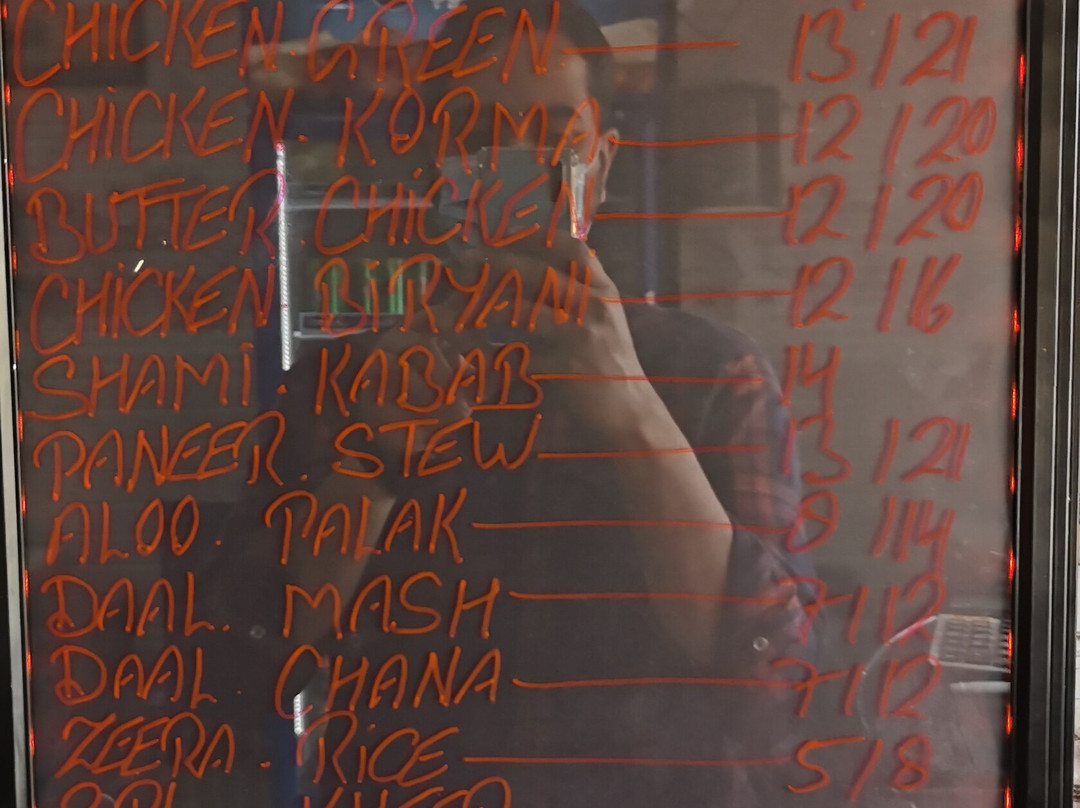 CHICKEN. GREEN. — 13 / 21
CHICKEN. KORMA — 12 / 20
BUTTER. CHICKEN — 12 / 20
CHICKEN. BIRYANI — 12 / 16
SHAMI. KABAB — 14
PANEER. STEW — 13 / 21
ALOO. PALAK — 9 / 14
DAAL. MASH — 7 / 12
DAAL. CHANA — 7 / 12
ZEERA. RICE — 5 / 8